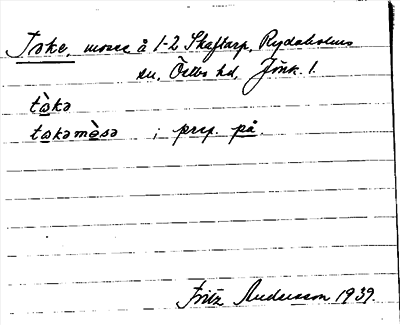 Toke, mosse å 1-2 Skaftarp, Rydaholms
sn, Östbo hd, Jönk. l.
tòkə
tokəmòsə ; prep. på.
Fritz Andersson 1939.